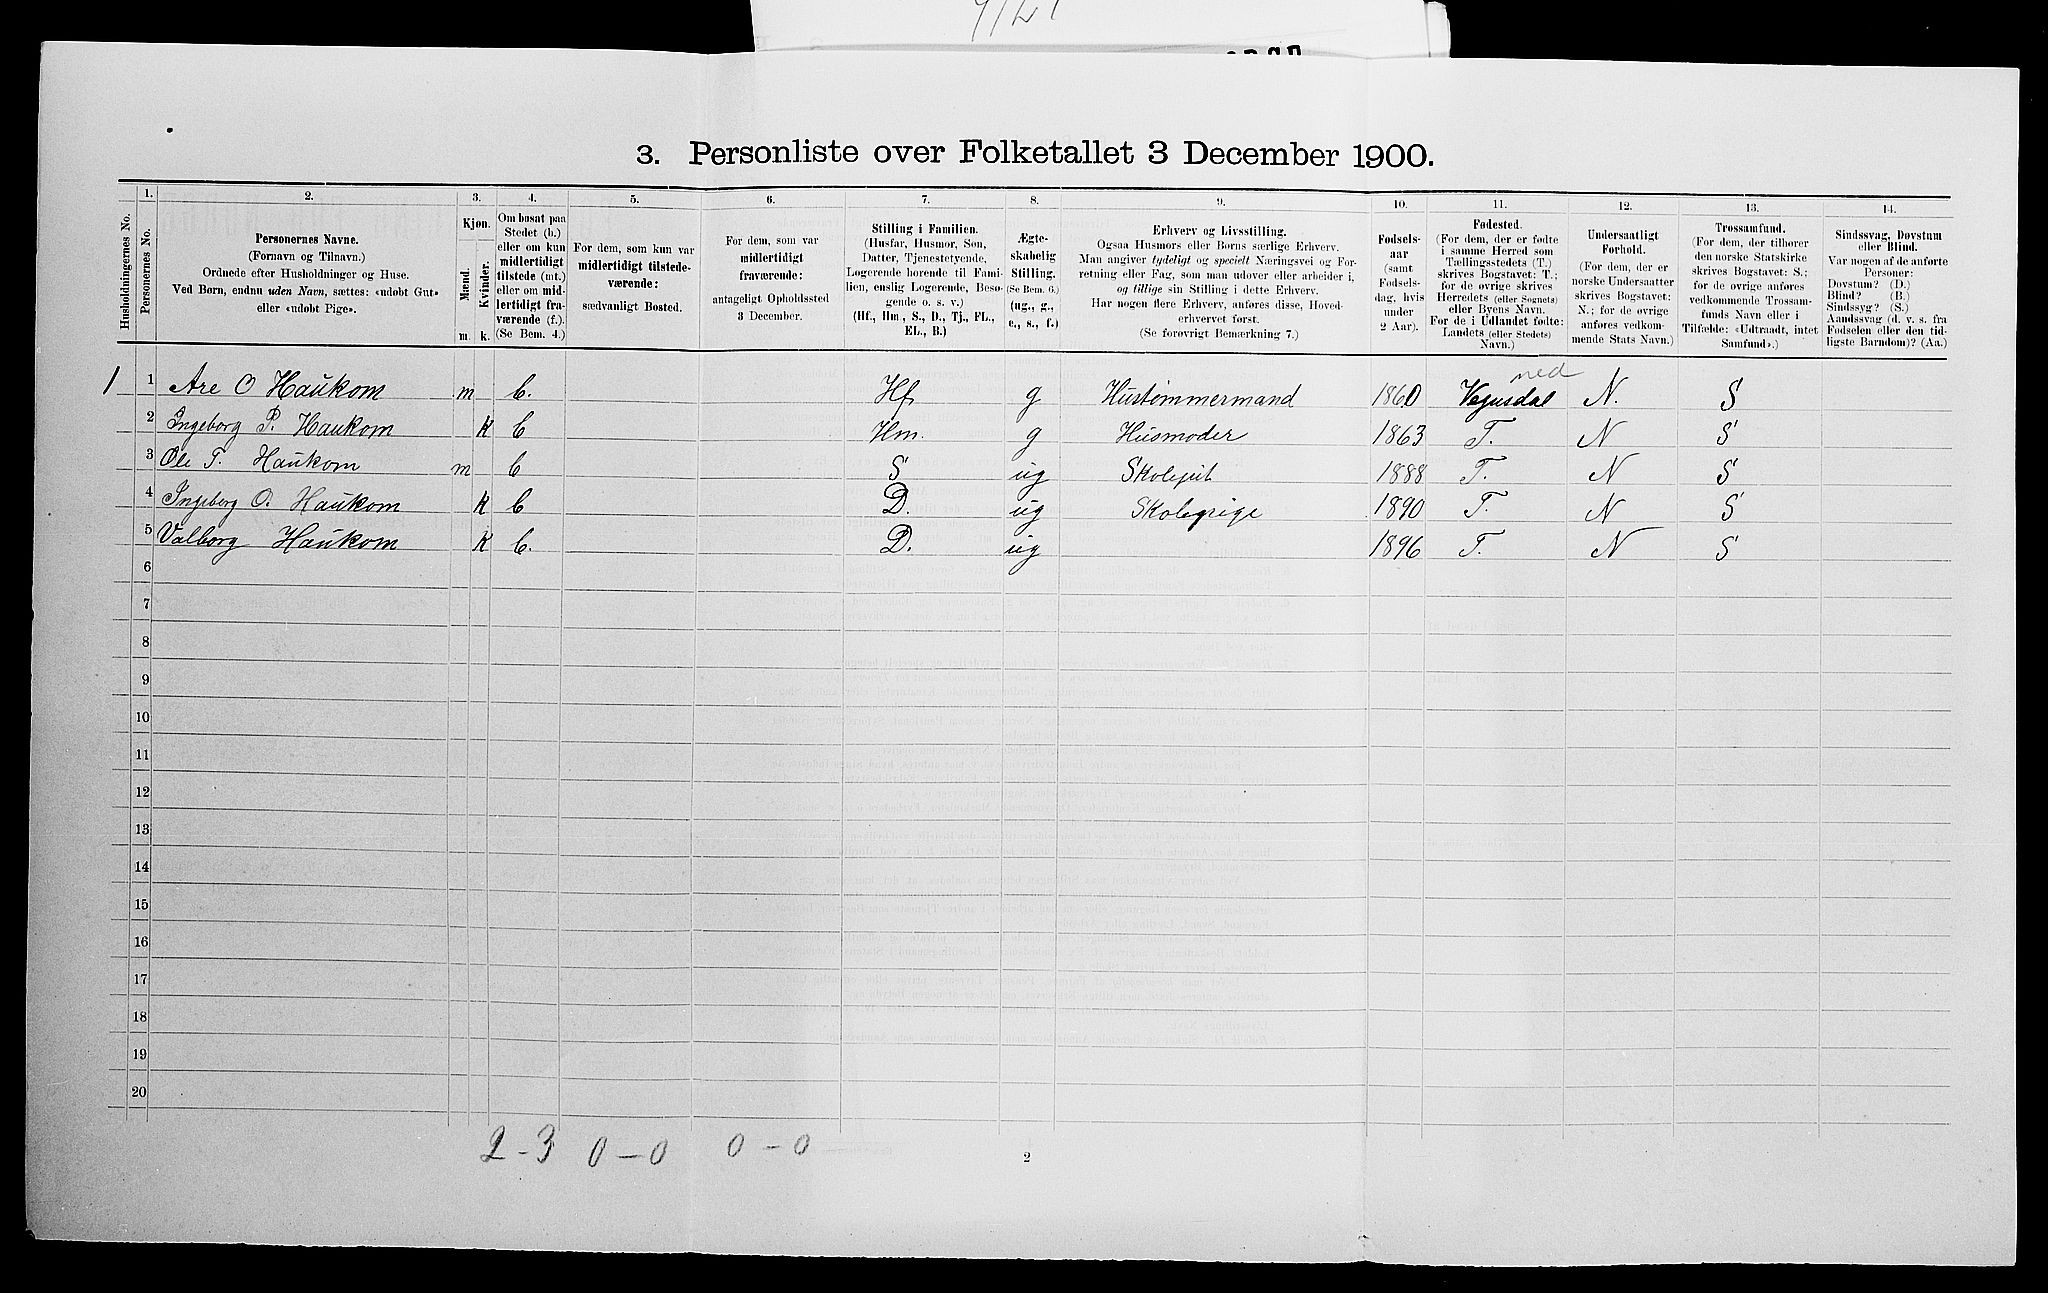 3. Personliste over Folketallet 3 December 1900.
1. 2. 3. 4. 5. 6. 7. 8. 9. 10. 11. 12. 13. 14.
Husholdningernes No.
Personernes No.
Personernes Navne.
(Fornavn og Tilnavn.)
Ordnede efter Husholdninger og Huse.
Ved Børn, endnu uden Navn, sættes: «udøbt Gut»
eller «udøbt Pige».
Kjøn.
Mænd.
Kvinder.
m. k.
Om bosat paa
Stedet (b.)
eller om kun
midlertidigt
tilstede (mt.)
eller om mid-
lertidigt fra-
værende (f.).
(Se Bem. 4.)
For dem, som kun var
midlertidigt tilstede-
værende:
sædvanligt Bosted.
For dem, som var
midlertidigt
fraværende:
antageligt Opholdssted
3 December.
Stilling i Familien.
(Husfar, Husmor, Søn,
Datter, Tjenestetyende,
Logerende hørende til Fami-
lien, enslig Logerende, Besø-
gende o. s. v.)
(Hf., Hm., S., D., Tj., FL.,
EL., B.)
Ægte-
skabelig
Stilling.
(Se Bem. 6.)
(ug., g.,
e., s., f.)
Erhverv og Livsstilling.
Ogsaa Husmors eller Børns særlige Erhverv.
Man angiver tydeligt og specielt Næringsvei og For-
retning eller Fag, som man udøver eller arbeider i,
og tillige sin Stilling i dette Erhverv.
Har nogen flere Erhverv, anføres disse, Hoved-
erhvervet først.
(Se forøvrigt Bemærkning 7.)
Fødsels-
aar
(samt
Fødsels-
dag, hvis
under
2 Aar).
Fødested.
(For dem, der er fødte
i samme Herred som
Tællingsstedets (T.)
skrives Bogstavet: T.;
for de øvrige skrives
Herredets (eller Sognets)
eller Byens Navn.
For de i Udlandet fødte:
Landets (eller Stedets)
Navn.)
Undersaatligt
Forhold.
(For dem, der er
norske Undersaatter
skrives Bogstavet:
N.; for de øvrige
anføres vedkom-
mende Stats Navn.)
Trossamfund.
(For dem, der tilhører
den norske Statskirke
skrives Bogstavet: S.;
for de øvrige anføres
vedkommende Trossam-
funds Navn eller i
Tilfælde: «Udtraadt, intet
Samfund».)
Sindssvag, Døvstum
eller Blind.
Var nogen af de anførte
Personer:
Døvstum? (D.)
Blind? (B.)
Sindssyg? (S.)
Aandssvag (d. v. s. fra
Fødselen eller den tid-
ligste Barndom)? (Aa.)
ned
1 1 Are O Haukom m b. Hf g Hustømmermand 1860 Vegusdal N. S
2 Ingeborg P. Haukom k b Hm. g Husmoder 1863 T. N S
3 Ole T. Haukom m b S ug Skolegut 1888 T. N S
4 Ingeborg O. Haukom k b D. ug Skolepige 1890 T. N S
5 Valborg Haukom k b. D. ug 1896 T. N S
6
7
8
9
10
11
12
13
14
15
16
17
18
19
20
2-3 0-0 0-0
2